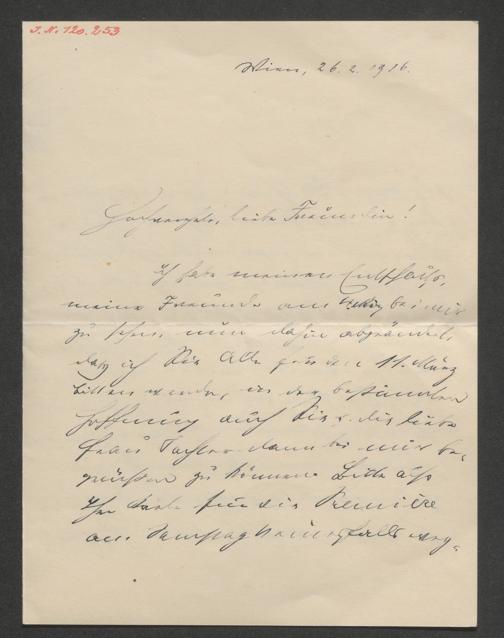 I.N. 120.253
Wien, 26. 2. 1916.
Hochverehrte, liebe Freundin!
Ich habe meinen Entschluss,
meine Freunde am bei mir
zu sehen, nun dahin abgeändert,
dass ich Sie Alle für den 11. März
bitten werde, in der bestimmten
Hoffnung auch Sie u. die liebe
Frau Tochter dann bei mir be-
grüssen zu können. Bitte also
Ihre Karte für die Première
am Samstag keinesfalls weg-